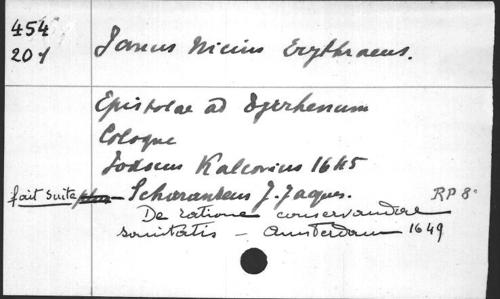 454
201
Janus Nicius Erythraeus.
Epistolae ad Tyrrhenum
Cologne
Jodocus Kalcovius 1645
fait suite Schoranteus J. Jaques. RP 8°
De ratione conservandae
sanitatis - Amsterdam 1649